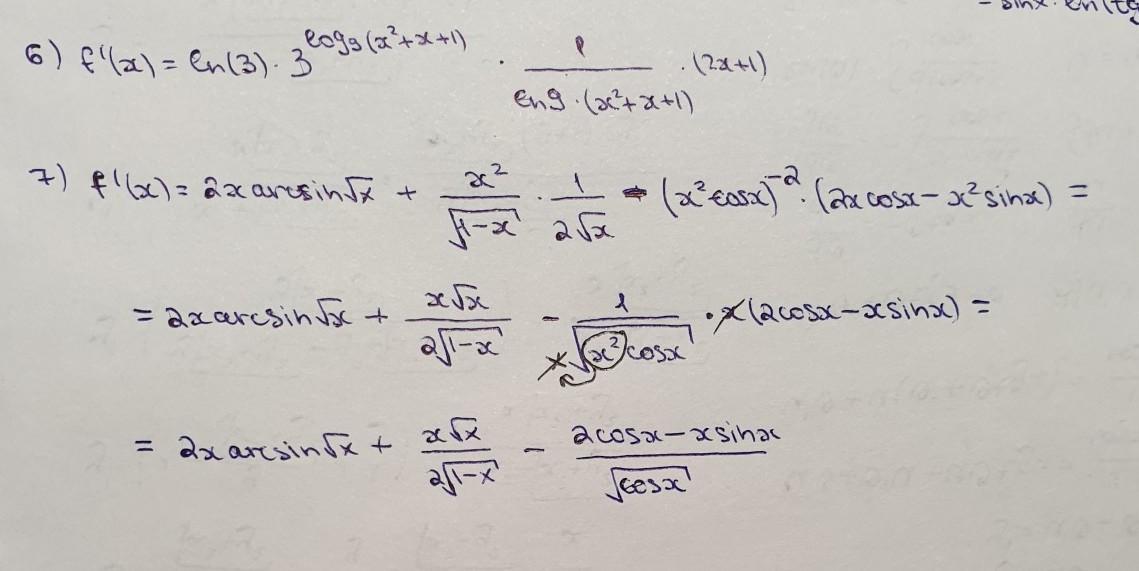 - sinx · ln(tg
6) f'(x) = ln(3) · 3^{log_9(x²+x+1)} · \frac{1}{ln9 · (x²+x+1)} · (2x+1)
7) f'(x) = 2x arcsin√x + \frac{x²}{√(1-x)} · \frac{1}{2√x} - (x² cosx)^{-2} · (2x cosx - x² sinx) =
= 2x arcsin√x + \frac{x√x}{2√(1-x)} - \frac{1}{x√(x² cosx)} · x(2cosx - x sinx) =
= 2x arcsin√x + \frac{x√x}{2√(1-x)} - \frac{2cosx - x sinx}{√(cosx)}